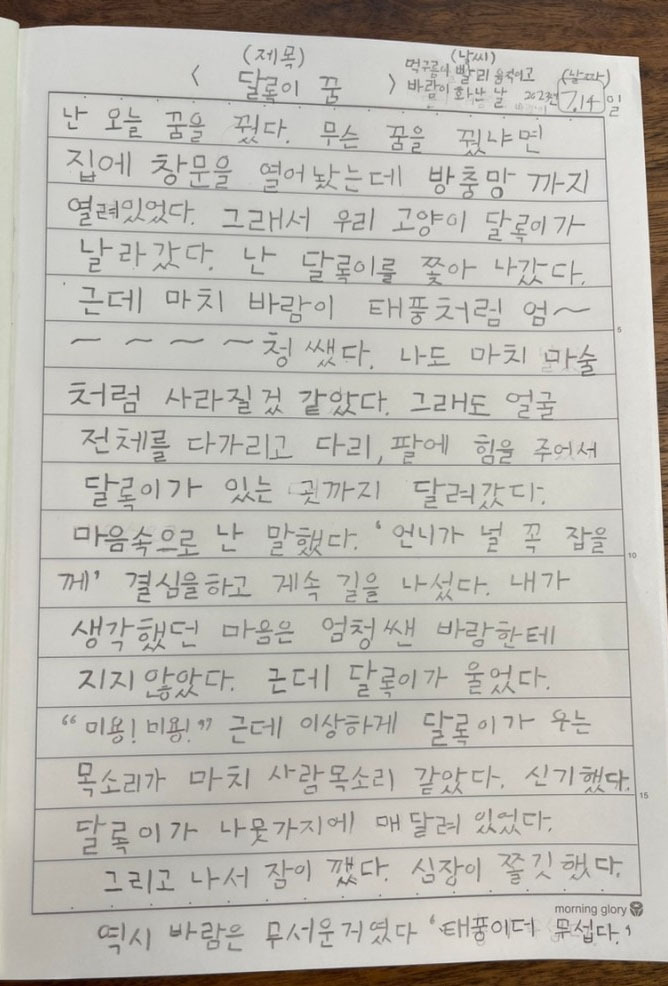 (제목) (날씨)
< 달록이 꿈 > 먹구름이 빨리 움직이고 (날짜)
바람이 화난 날 2023년 7.14 일
난 오늘 꿈을 꿨다. 무슨 꿈을 꿨냐면
집에 창문을 열어놨는데 방충망 까지
열려있었다. 그래서 우리 고양이 달록이가
날라갔다. 난 달록이를 쫓아 나갔다.
근데 마치 바람이 태풍처럼 엄~
~ ~ ~ ~ 청 쌨다. 나도 마치 마술
처럼 사라질것 같았다. 그래도 얼굴
전체를 다가리고 다리, 팔에 힘을 주어서
달록이가 있는 곳까지 달려갔다.
마음속으로 난 말했다. '언니가 널 꼭 잡을
께' 결심을하고 계속 길을 나섰다. 내가
생각했던 마음은 엄청쌘 바람한테
지지 않았다. 근데 달록이가 울었다.
"미용! 미용!" 근데 이상하게 달록이가 우는
목소리가 마치 사람목소리 같았다. 신기했다.
달록이가 나뭇가지에 매달려 있었다.
그리고 나서 잠이 깼다. 심장이 쫄깃했다.
역시 바람은 무서운거였다 '태풍이더 무섭다.'
5
10
15
morning glory